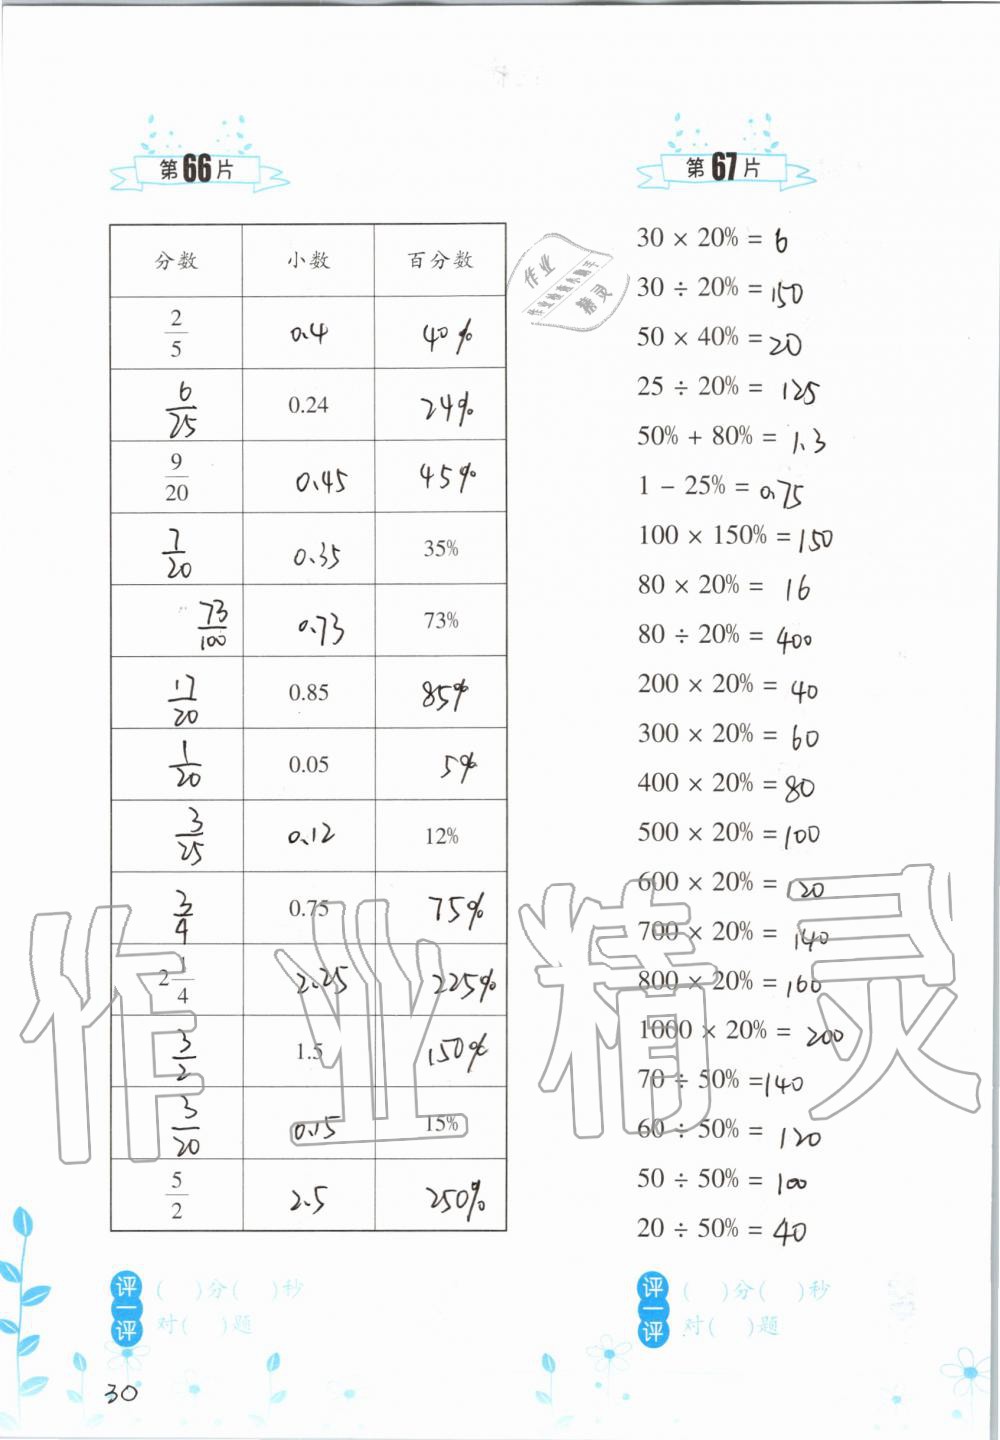 第66片
分数 小数 百分数
2/5 0.4 40%
6/25 0.24 24%
9/20 0.45 45%
7/20 0.35 35%
73/100 0.73 73%
17/20 0.85 85%
1/20 0.05 5%
3/25 0.12 12%
3/4 0.75 75%
2 1/4 2.25 225%
3/2 1.5 150%
3/20 0.15 15%
5/2 2.5 250%
评一评
( )分( )秒
对( )题
30
作业
精灵
第67片
30 × 20% = 6
30 ÷ 20% = 150
50 × 40% = 20
25 ÷ 20% = 125
50% + 80% = 1.3
1 − 25% = 0.75
100 × 150% = 150
80 × 20% = 16
80 ÷ 20% = 400
200 × 20% = 40
300 × 20% = 60
400 × 20% = 80
500 × 20% = 100
600 × 20% = 120
700 × 20% = 140
800 × 20% = 160
1000 × 20% = 200
70 ÷ 50% = 140
60 ÷ 50% = 120
50 ÷ 50% = 100
20 ÷ 50% = 40
评一评
( )分( )秒
对( )题
作业精灵